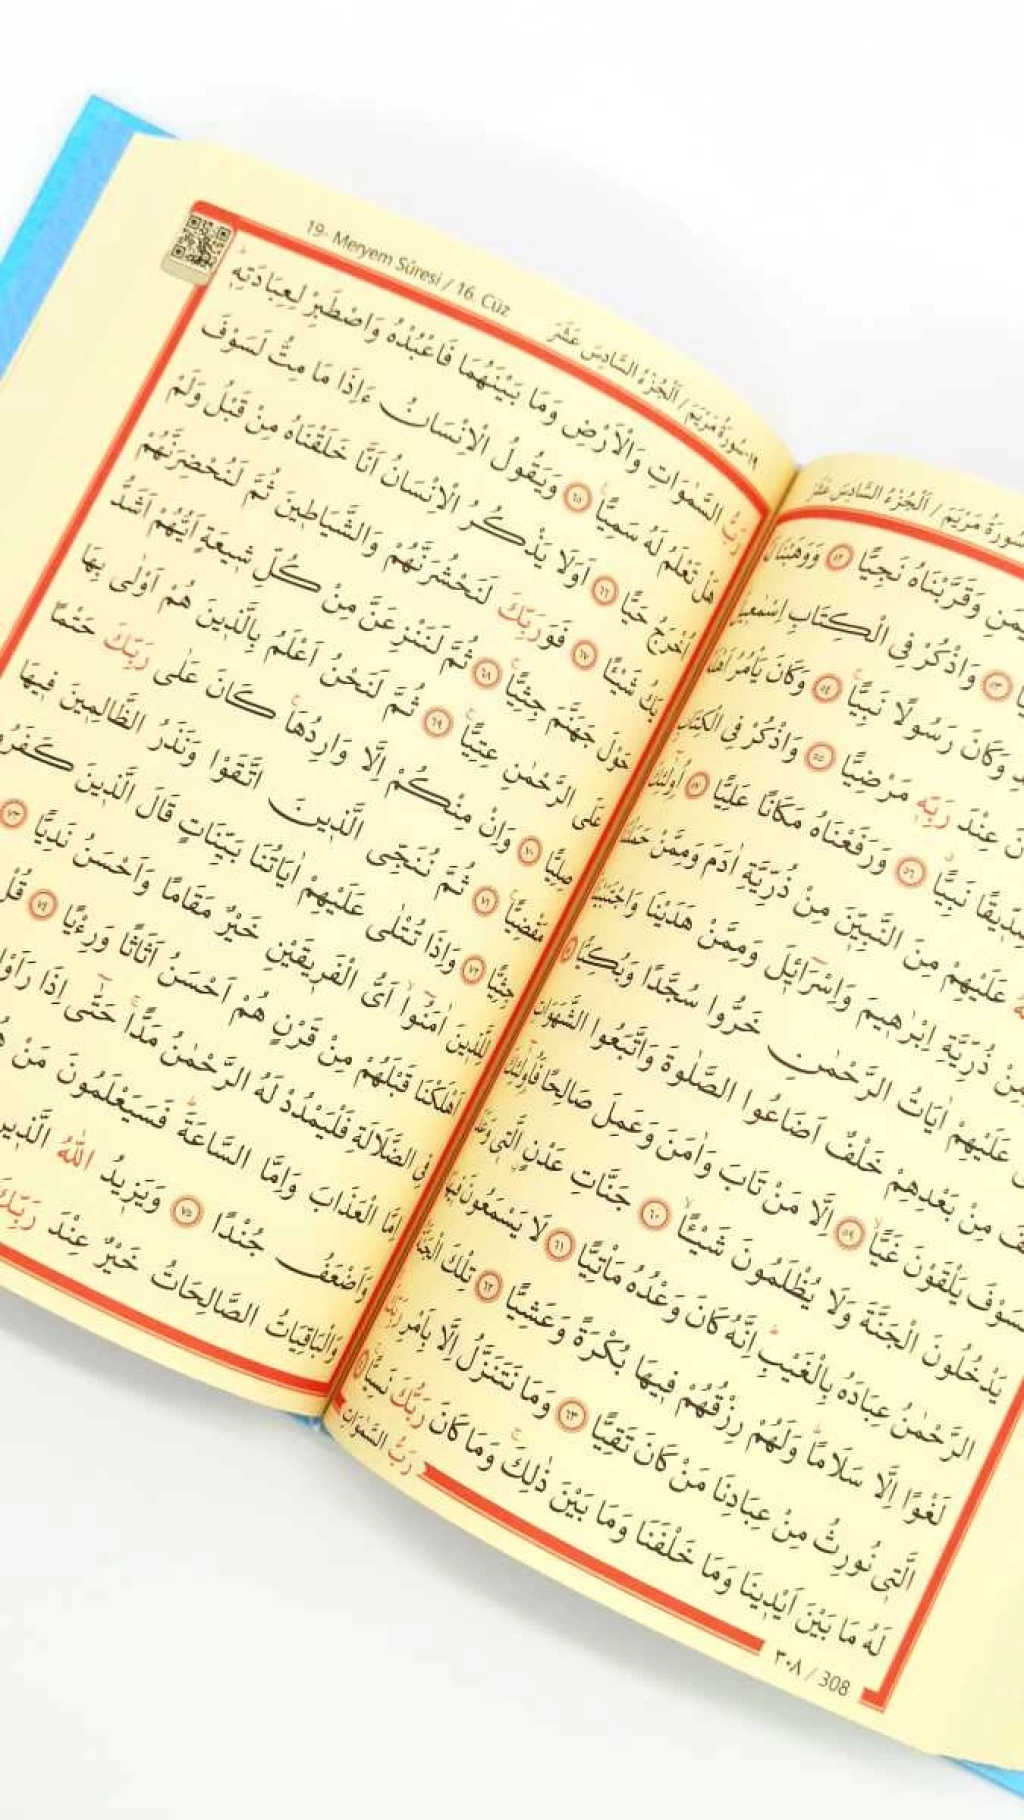 سُورَةُ مَرْيَمَ / اَلْجُزْءُ السَّادِسَ عَشَرَ
وَقَرَّبْنَاهُ نَجِيًّا ﴿٥٢﴾ وَوَهَبْنَا
﴿٥٣﴾ وَاذْكُرْ فِى الْكِتَابِ اِسْمٰعِيلَ
وَكَانَ رَسُولًا نَبِيًّا ﴿٥٤﴾ وَكَانَ يَأْمُرُ اَهْلَهُ
عِنْدَ رَبِّهِ مَرْضِيًّا ﴿٥٥﴾ وَاذْكُرْ فِى الْكِتَابِ
صِدِّيقًا نَبِيًّا ﴿٥٦﴾ وَرَفَعْنَاهُ مَكَانًا عَلِيًّا ﴿٥٧﴾ اُولٰٓئِكَ
عَلَيْهِمْ مِنَ النَّبِيّنَ مِنْ ذُرِّيَّةِ اٰدَمَ وَمِمَّنْ حَمَلْنَا
مِنْ ذُرِّيَّةِ اِبْرٰهِيمَ وَاِسْرَٓائِلَ وَمِمَّنْ هَدَيْنَا وَاجْتَبَيْنَا
عَلَيْهِمْ اٰيَاتُ الرَّحْمٰنِ خَرُّوا سُجَّدًا وَبُكِيًّا
مِنْ بَعْدِهِمْ خَلْفٌ اَضَاعُوا الصَّلٰوةَ وَاتَّبَعُوا الشَّهَوَاتِ
فَسَوْفَ يَلْقَوْنَ غَيًّا ﴿٥٩﴾ اِلَّا مَنْ تَابَ وَاٰمَنَ وَعَمِلَ صَالِحًا فَاُولٰٓئِكَ
يَدْخُلُونَ الْجَنَّةَ وَلَا يُظْلَمُونَ شَيْـًٔا ﴿٦٠﴾ جَنَّاتِ عَدْنٍ الَّتِى وَعَدَ
الرَّحْمٰنُ عِبَادَهُ بِالْغَيْبِ اِنَّهُ كَانَ وَعْدُهُ مَأْتِيًّا ﴿٦١﴾ لَا يَسْمَعُونَ فِيهَا
لَغْوًا اِلَّا سَلَامًا وَلَهُمْ رِزْقُهُمْ فِيهَا بُكْرَةً وَعَشِيًّا ﴿٦٢﴾ تِلْكَ الْجَنَّةُ
الَّتِى نُورِثُ مِنْ عِبَادِنَا مَنْ كَانَ تَقِيًّا ﴿٦٣﴾ وَمَا نَتَنَزَّلُ اِلَّا بِاَمْرِ رَبِّكَ
لَهُ مَا بَيْنَ اَيْدِينَا وَمَا خَلْفَنَا وَمَا بَيْنَ ذٰلِكَ وَمَا كَانَ رَبُّكَ نَسِيًّا ﴿٦٤﴾
رَبُّ السَّمٰوَاتِ
٣٠٨ / 308
19- Meryem Sûresi / 16. Cüz
١٩-سُورَةُ مَرْيَمَ / اَلْجُزْءُ السَّادِسَ عَشَرَ
رَبُّ السَّمٰوَاتِ وَالْاَرْضِ وَمَا بَيْنَهُمَا فَاعْبُدْهُ وَاصْطَبِرْ لِعِبَادَتِهِ
هَلْ تَعْلَمُ لَهُ سَمِيًّا ﴿٦٥﴾ وَيَقُولُ الْاِنْسَانُ ءَاِذَا مَا مِتُّ لَسَوْفَ
اُخْرَجُ حَيًّا ﴿٦٦﴾ اَوَلَا يَذْكُرُ الْاِنْسَانُ اَنَّا خَلَقْنَاهُ مِنْ قَبْلُ وَلَمْ
يَكُ شَيْئًا ﴿٦٧﴾ فَوَرَبِّكَ لَنَحْشُرَنَّهُمْ وَالشَّيَاطِينَ ثُمَّ لَنُحْضِرَنَّهُمْ
حَوْلَ جَهَنَّمَ جِثِيًّا ﴿٦٨﴾ ثُمَّ لَنَنْزِعَنَّ مِنْ كُلِّ شِيعَةٍ اَيُّهُمْ اَشَدُّ
عَلَى الرَّحْمٰنِ عِتِيًّا ﴿٦٩﴾ ثُمَّ لَنَحْنُ اَعْلَمُ بِالَّذِينَ هُمْ اَوْلٰى بِهَا
صِلِيًّا ﴿٧٠﴾ وَاِنْ مِنْكُمْ اِلَّا وَارِدُهَا كَانَ عَلٰى رَبِّكَ حَتْمًا
مَقْضِيًّا ﴿٧١﴾ ثُمَّ نُنَجِّى الَّذِينَ اتَّقَوْا وَنَذَرُ الظَّالِمِينَ فِيهَا
جِثِيًّا ﴿٧٢﴾ وَاِذَا تُتْلٰى عَلَيْهِمْ اٰيَاتُنَا بَيِّنَاتٍ قَالَ الَّذِينَ كَفَرُوا
لِلَّذِينَ اٰمَنُٓوا اَىُّ الْفَرِيقَيْنِ خَيْرٌ مَقَامًا وَاَحْسَنُ نَدِيًّا ﴿٧٣﴾
اَهْلَكْنَا قَبْلَهُمْ مِنْ قَرْنٍ هُمْ اَحْسَنُ اَثَاثًا وَرِءْيًا ﴿٧٤﴾ قُلْ
فِى الضَّلَالَةِ فَلْيَمْدُدْ لَهُ الرَّحْمٰنُ مَدًّا حَتّٰٓى اِذَا رَاَوْا
اِمَّا الْعَذَابَ وَاِمَّا السَّاعَةَ فَسَيَعْلَمُونَ مَنْ
وَاَضْعَفُ جُنْدًا ﴿٧٥﴾ وَيَزِيدُ اللّٰهُ الَّذِينَ
وَالْبَاقِيَاتُ الصَّالِحَاتُ خَيْرٌ عِنْدَ رَبِّكَ